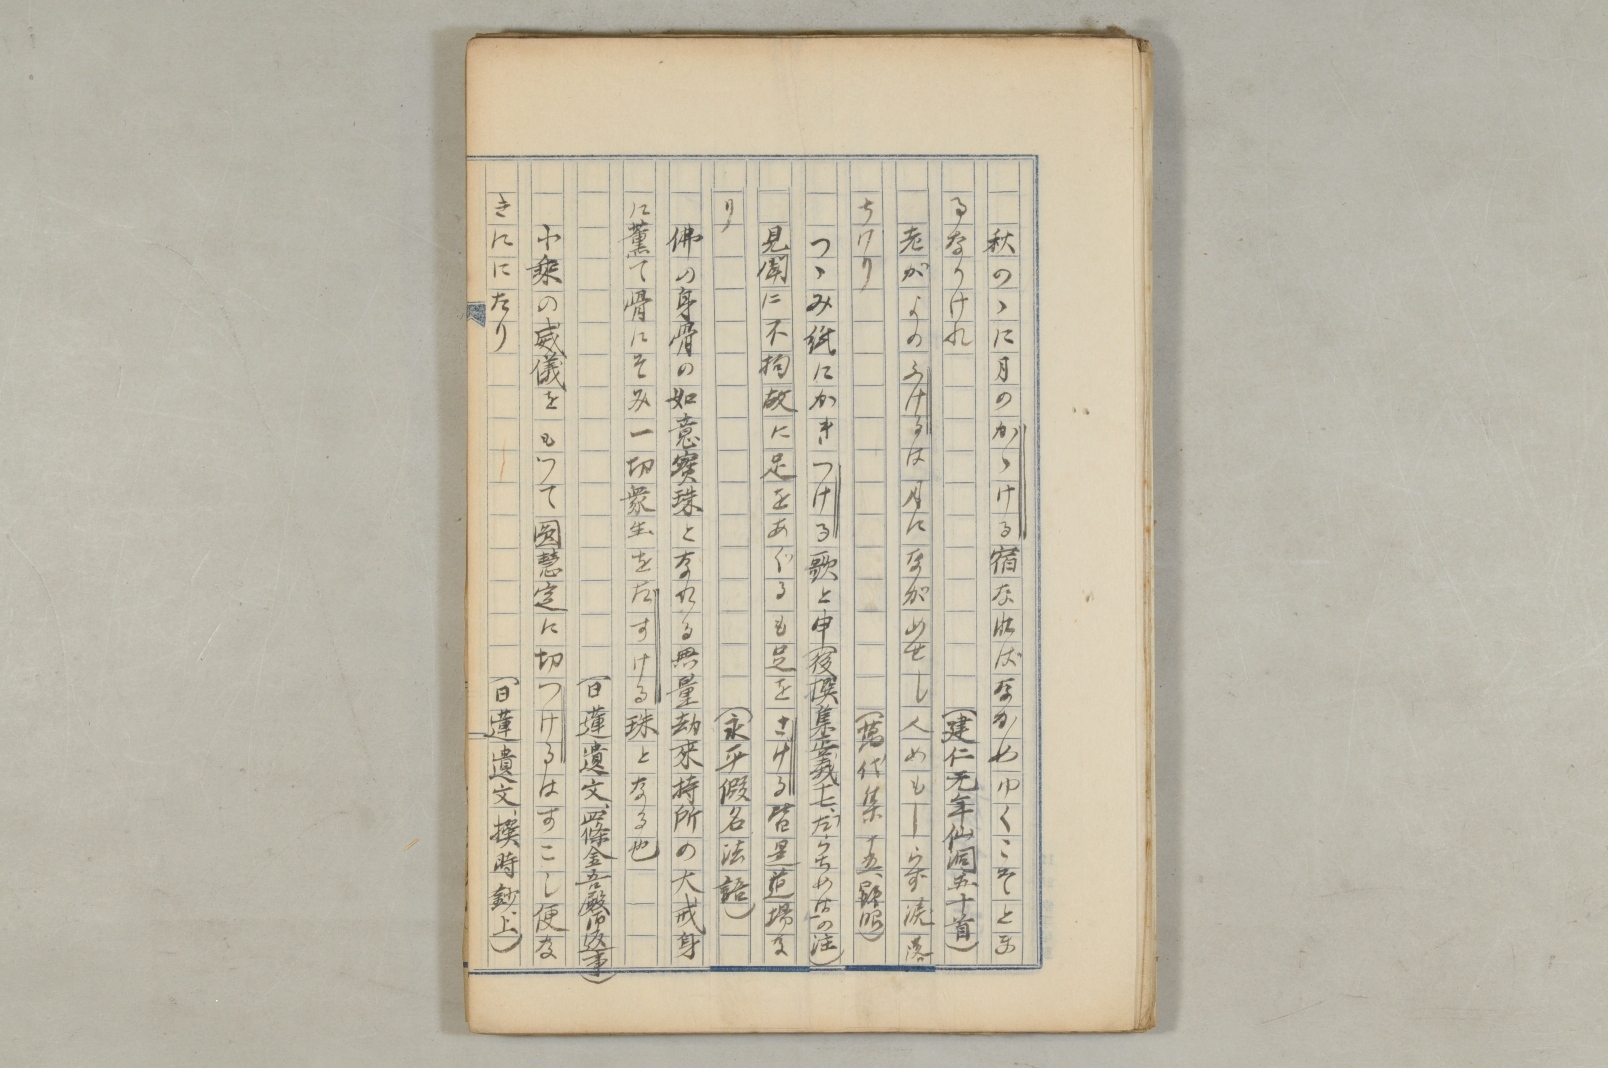 秋のゝに月のかゝける宿なればなかめゆくこそとま
るなりけれ
（建仁元年仙洞五十首）
老がよのふけるは月にながめせし人めもしらず涙落
ちけり
（萬代集十五、顕昭）
つゝみ紙にかきつける歌と申（後撰集正義七、だうらちめ法の注）
見聞に不拘故に足をあぐるも足をさける皆是道場な
り
（永平假名法語）
佛の身骨の如意寳珠となれる無量劫來持所の大戒身
に薫て骨にそみ一切衆生をたすける珠となる也
（日蓮遺文、四條金吾殿御返事）
小乗の威儀をもつて圓慧定に切つけるはすこし便な
きににたり
（日蓮遺文、撰時鈔上、）